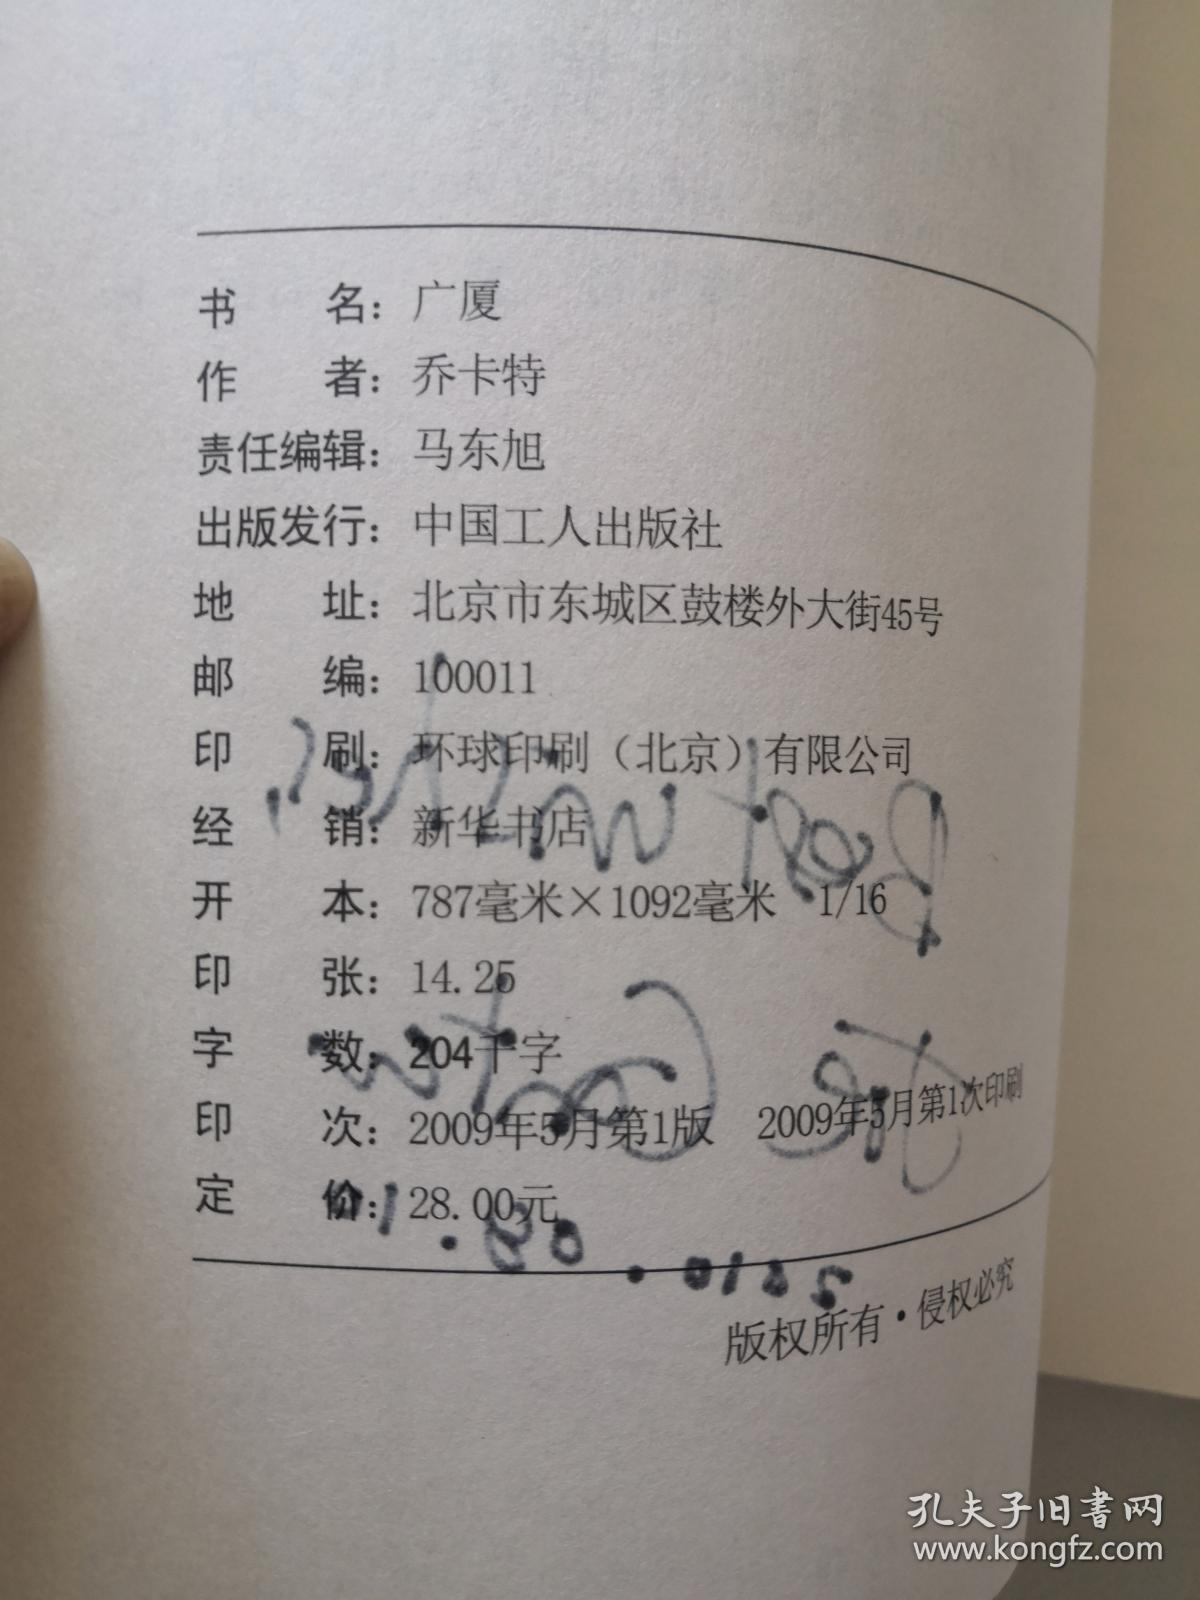 书 名：广厦
作 者：乔卡特
责任编辑：马东旭
出版发行：中国工人出版社
地 址：北京市东城区鼓楼外大街45号
邮 编：100011
印 刷：环球印刷（北京）有限公司
经 销：新华书店
开 本：787毫米×1092毫米 1/16
印 张：14.25
字 数：204千字
印 次：2009年5月第1版 2009年5月第1次印刷
定 价：28.00元
版权所有·侵权必究
孔夫子旧书网
www.kongfz.com